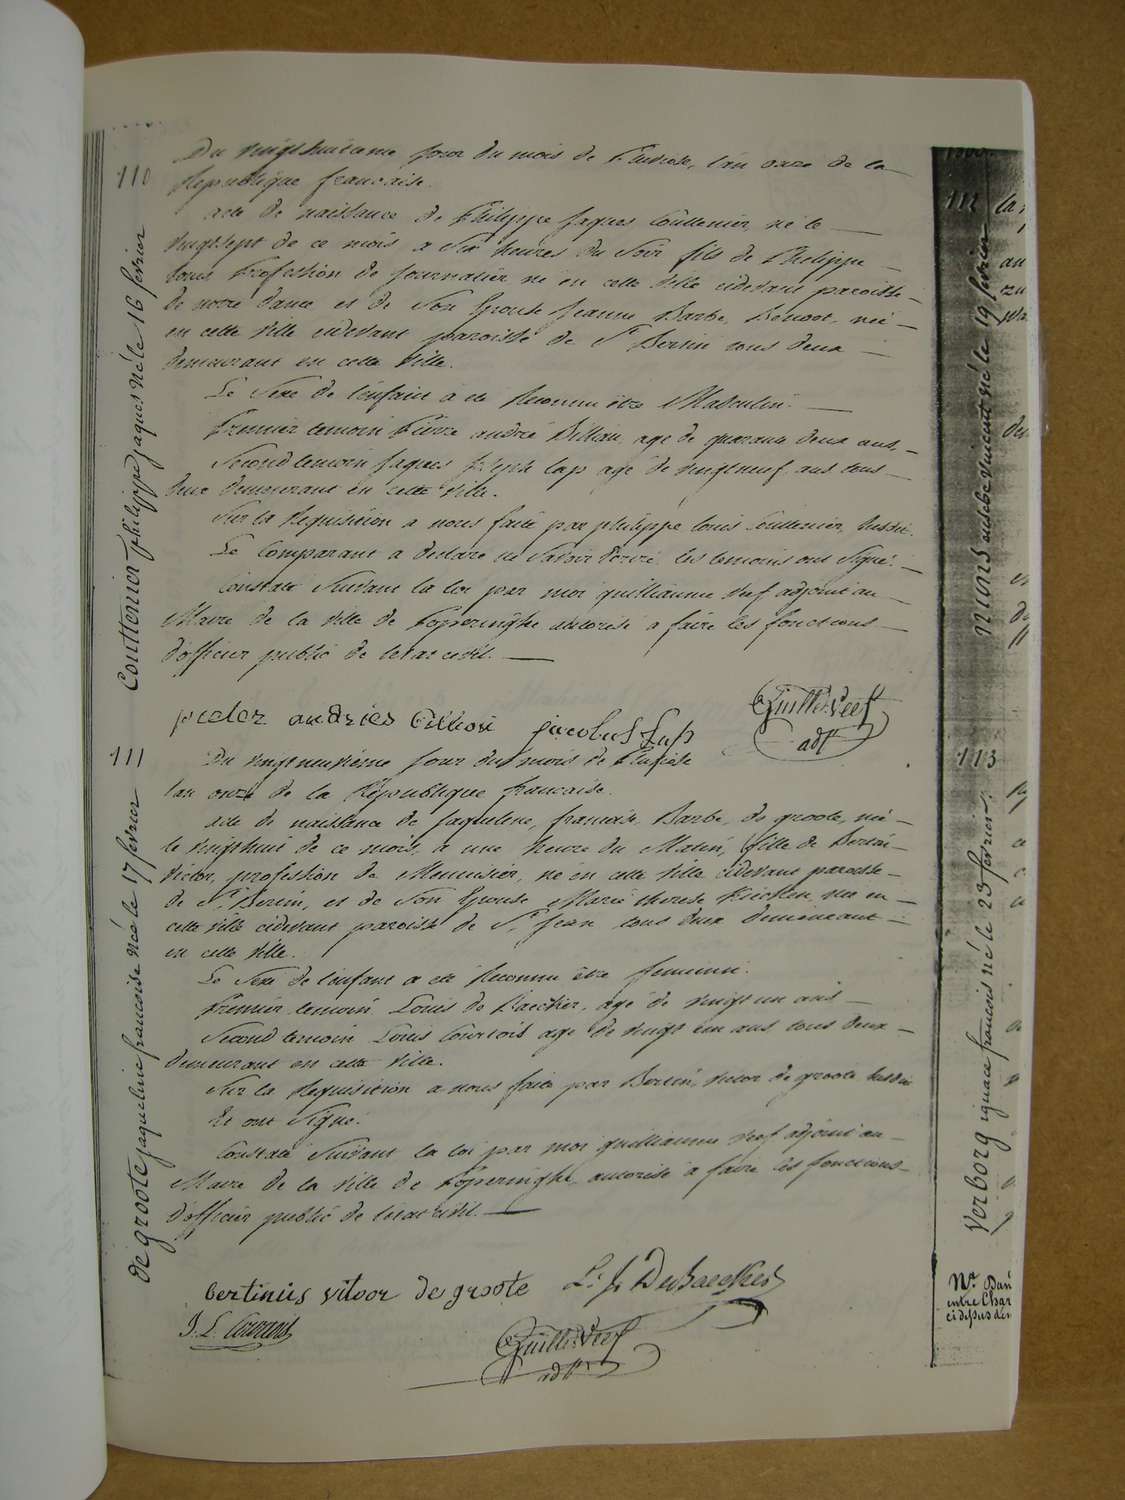 110
Du vingthuitieme jour du mois de Pluviose, l'an onze de la
Republique francaise.
acte de naissance de Philippe Jaques Couttenier, né le
vingtsept de ce mois a six heures du soir fils de Philippe
Louis Profession de journalier né en cette ville cidevant paroisse
de notre dame et de son Epouse Jeanne Barbe, née
en cette ville cidevant paroisse de St Bertin tous deux
demeurant en cette ville.
Le Sexe de l'enfant a été Reconnu être Masculin.
Premier temoin Pierre andré age de quarante deux ans,
Second temoin Jaques Joseph Lap agé de vingtneuf ans tous
deux demeurant en cette ville.
Sur la Requisition a nous faite par philippe louis Couttenier, susdit.
Le Comparant a declaré ne savoir ecrire les temoins ont signé.
Constaté Suivant la loi par moi guilliaume veef adjoint au
Maire de la ville de Poperinghe autorisé a faire les fonctions
d'officier public de letat civil.
pieter andries jacobus Lap
Guille Veef
adt
Couttenier philippe jaques né le 16 fevrier
111
Du vingtneuvième jour du mois de Pluviose
l'an onze de la République francaise.
acte de naissance de Jaqueline, francoise, Barbe, de groote, née
le vingthuit de ce mois, a une heure du Matin, fille de Bertin
Victor, profession de Menuisier, né en cette ville cidevant paroisse
de St Bertin, et de son Epouse Marie therese née en
cette ville cidevant paroisse de St Jean tous deux demeurant
en cette ville.
Le Sexe de l'enfant a été Reconnu être feminin.
Premier temoin Louis de Baecker, agé de vingt un ans
Second temoin Louis Courtois age de vingt un ans tous deux
demeurant en cette ville.
Sur la Requisition a nous faite par Bertin, victor de groote susdit
Et ont signé.
Constaté Suivant la loi par moi guilliaume veef adjoint au
Maire de la ville de Poperinghe, autorisé a faire les fonctions
d'officier public de letat civil.
bertinus vitoor de groote L: J: DeBaecker
J. L.
Guille Veef
adt
de groote jaqueline francoise née le 17 fevrier
112
né le 19 fevrier
113
Verborg ignace francois né le 23 fevrier.
Nr. Dan
entre Char
ci depus den